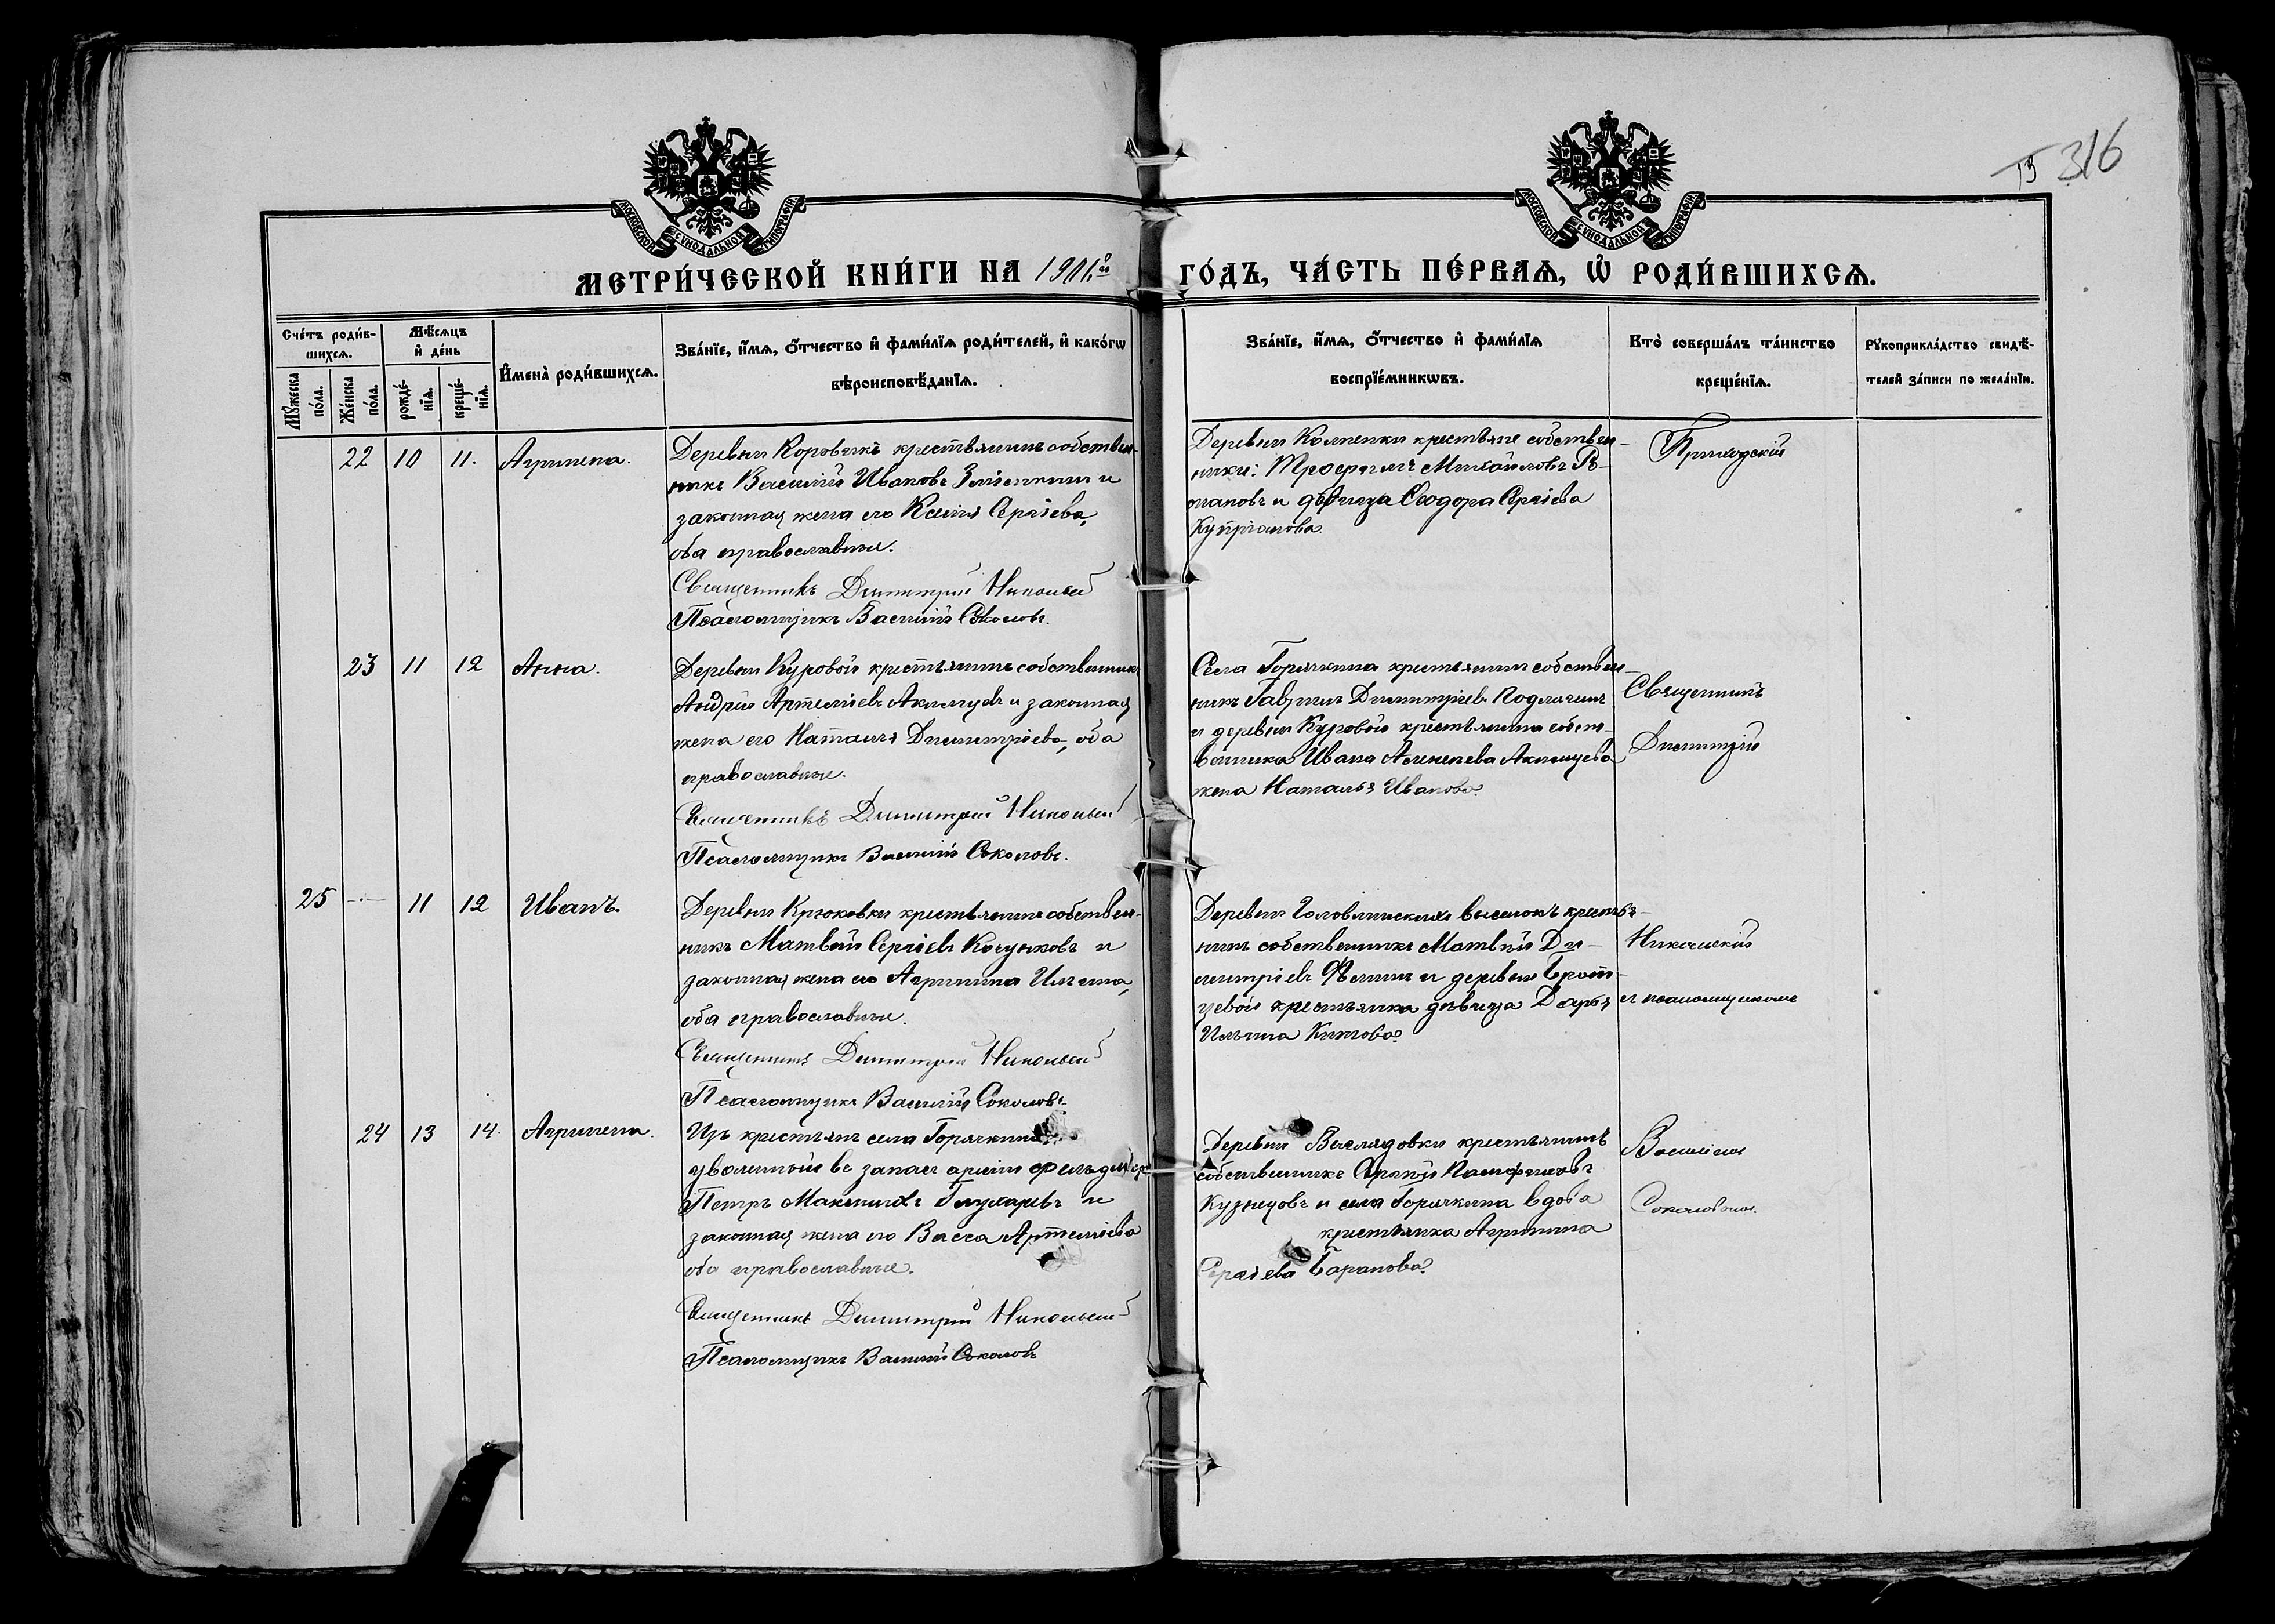 МОСКОВСКОЙ СѴНОДАЛЬНОЙ ТИПОГРАФІИ
МОСКОВСКОЙ СѴНОДАЛЬНОЙ ТИПОГРАФІИ
316
МЕТРИ́ЧЕСКОЙ КНИ́ГИ НА
ГО́ДЪ, ЧА́СТЬ ПЕ́РВАѦ, Ѡ҆ РОДИ́ВШИХСѦ.
Сче́тъ роди́в-
шихсѧ.
Мѣ́сѧцъ
и҆ де́нь
Мꙋ́жеска по́ла.
Же́нска по́ла.
рожде́-нїѧ.
креще́-нїѧ.
И҆мена̀ роди́вшихсѧ.
Зва́нїе, и҆́мѧ, ѻ҆́тчество и҆ фами́лїѧ роди́телей, и҆ како́гѡ
вѣроисповѣ́данїѧ.
Зва́нїе, и҆́мѧ, ѻ҆́тчество и҆ фами́лїѧ
воспрїе́мникѡвъ.
Кто̀ соверша́лъ та́инство
креще́нїѧ.
Рꙋкоприкла́дство свидѣ́-
телей за́писи по жела́нїю.
22 10 11.
Деревни крестьянинъ собствен-
никъ Василій Ивановъ и
законная жена его Ксенія Сергіева,
оба православные.
Священникъ Димитрій Никольскій
Псаломщикъ Василій Соколовъ.
Деревни крестьяне собствен-
ники: Михайловъ
и дѣвица Ѳеодора Сергіева
Купріанова.
Приходскій
23 11 12 Анна.
Деревни Куровой крестьянинъ собственникъ
Андрей Артеміевъ и законная
жена его Наталія Димитріева, оба
православные.
Священникъ Димитрій Никольскій
Псаломщикъ Василій Соколовъ.
Села Горячкина крестьянинъ собствен-
никъ Гавріилъ Димитріевъ
и деревни Куровой крестьянина собст-
венника Ивана
жена Наталья Иванова.
Священникъ
Димитрій
25 11 12 Иванъ.
Деревни Крюковки крестьянинъ собствен-
никъ Матвѣй Сергіевъ и
законная жена его Агрипина Ильина,
оба православные.
Священникъ Димитрій Никольскій
Псаломщикъ Василій Соколовъ
Деревни Головлинскихъ выселокъ крестья-
нинъ собственникъ Матвѣй Ди-
митріевъ и деревни
крестьянка дѣвица Дарья
Ильина
Никольскій
съ псаломщикомъ
24 13 14.
Изъ крестьянъ села Горячкина,
уволенный въ запасъ арміи фельдшеръ
Петръ Глухаревъ и
законная жена его Васса Артеміева
оба православные.
Священникъ Димитрій Никольскій
Псаломщикъ Василій Соколовъ
Деревни крестьянинъ
собственникъ
Кузнецовъ и села Горячкина вдова
крестьянка Агрипина
Сергіева Баранова.
Василіемъ
Соколовымъ.